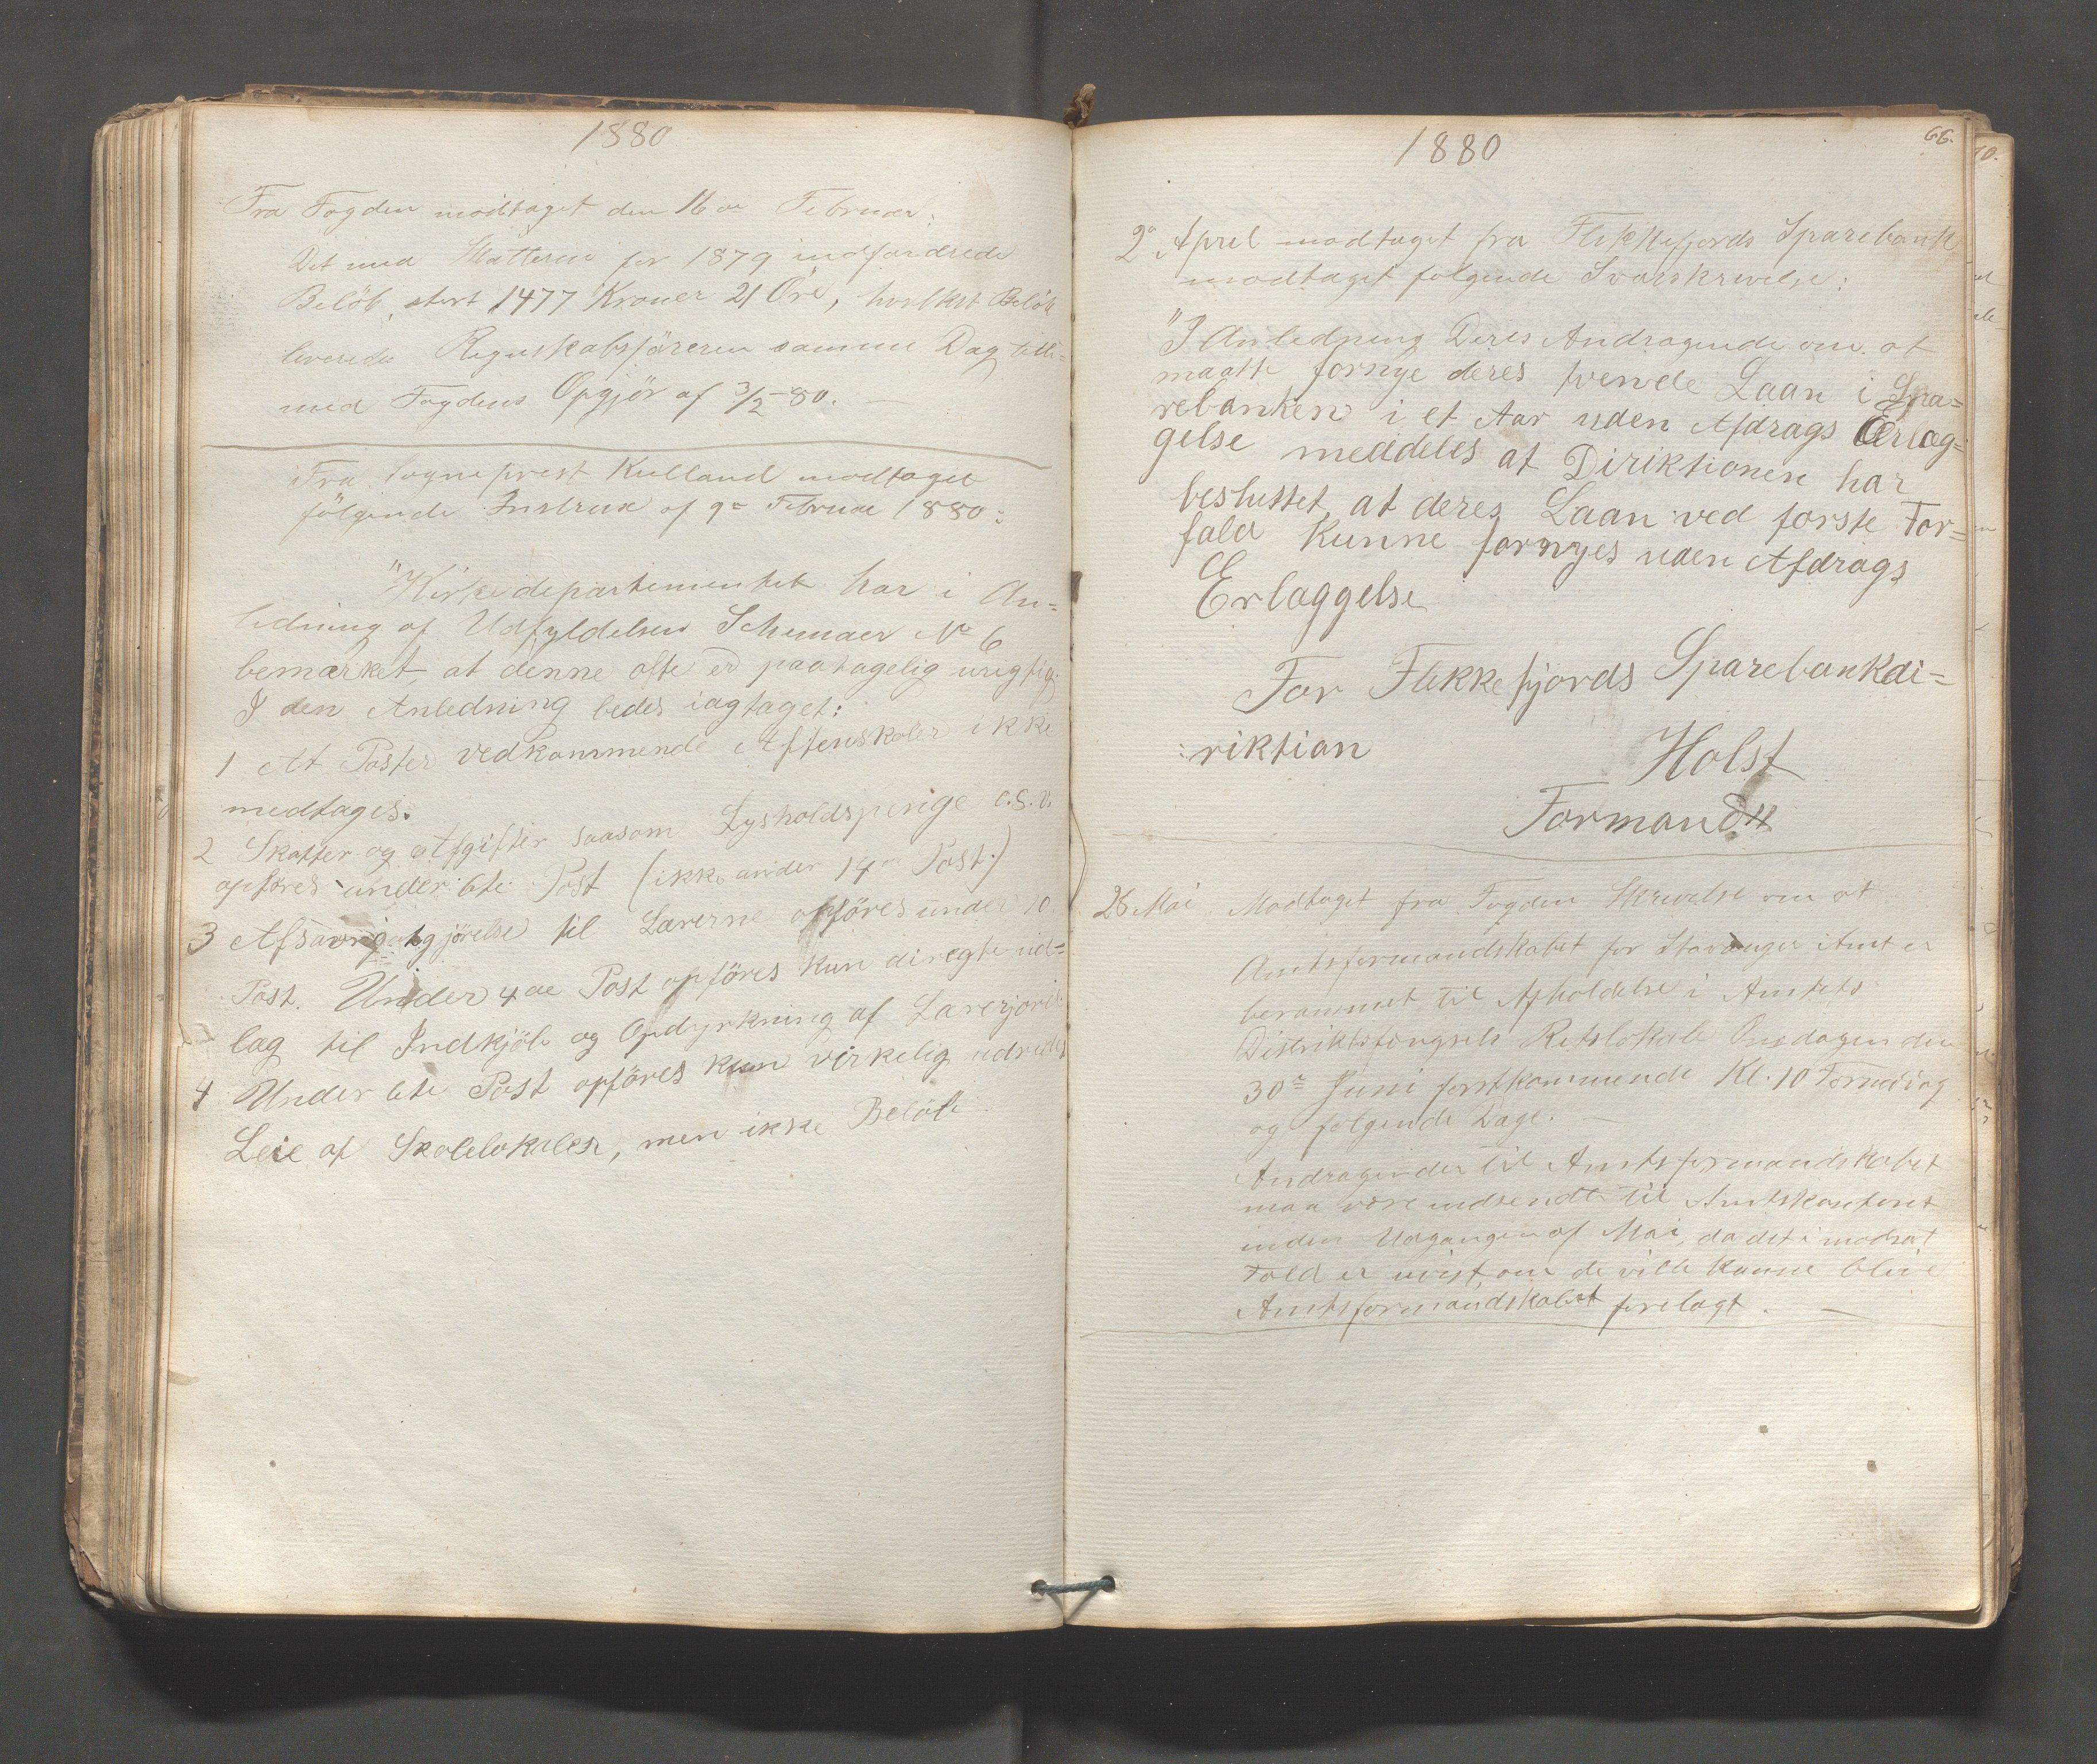 1880
Fra Fogden modtaget den 16de Februar:
Det med Skatterne for 1879 indfordrede
Belöb, stort 1477 Kroner 21 Öre, hvilket Belöb
leverede Regnskabsföreren samme Dag tilli=
med Fogdens Opgjör af 3/2-80. —
Fra Sogneprest Kulland modtaget
fölgende Instrux af 9de Februar 1880:
"Kirkedepartementet har i An=
ledning af Udfyldelsen Schemaer No 6
bemærket, at denne ofte er paatagelig urigtig.
I den Anledning bedes iagtaget:
1 At Poster vedkommende Aftenskoler ikke
medtages.
2 Skatter og Afgifter saasom Lysholdspenge o.s.v.
opföres under 6te Post (ikke under 14de Post.)
3 Afsavnsgodtgjörelse til Lærerne opföres under 10
Post. Under 4de Post opföres kun diregte ud=
lag til Indkjöb og Opdyrkning af Lærerjord
4 Under 6te Post opföres kun virkelig udredet
Leie af Skolelokaler, men ikke Belöb
1880
66.
2den April modtaget fra Flekkefjords Sparebank
modtaget følgende Svarskrivelse:
"I Anledning Deres Andragende om at
maatte fornye deres tvende Laan i Spa=
rebanken i et Aar uden Afdrags Erlæg=
gelse meddeles at Diriktionen har
besluttet, at deres Laan ved første For=
fald kunne fornyes uden Afdrags
Erlæggelse
For Flekkefjords Sparebankdi=
riktion
Holst
Formand"
28 Mai Modtaget fra Fogden Skrivelse om at
Amtsformandskabet for Stavanger Amt er
berammet til Afholdelse i Amtets
Distriktsfengsels Retslokale Onsdagen den
30te Juni førstkommende Kl. 10 Formidag
og følgende Dage. —
Andragender til Amtsformandskabet
maa være indsendte til Amtskontoret
inden Udgangen af Mai, da det i modsat
Fald er uvist, om de ville kunne blive
Amtsformandskabet forelagt. —